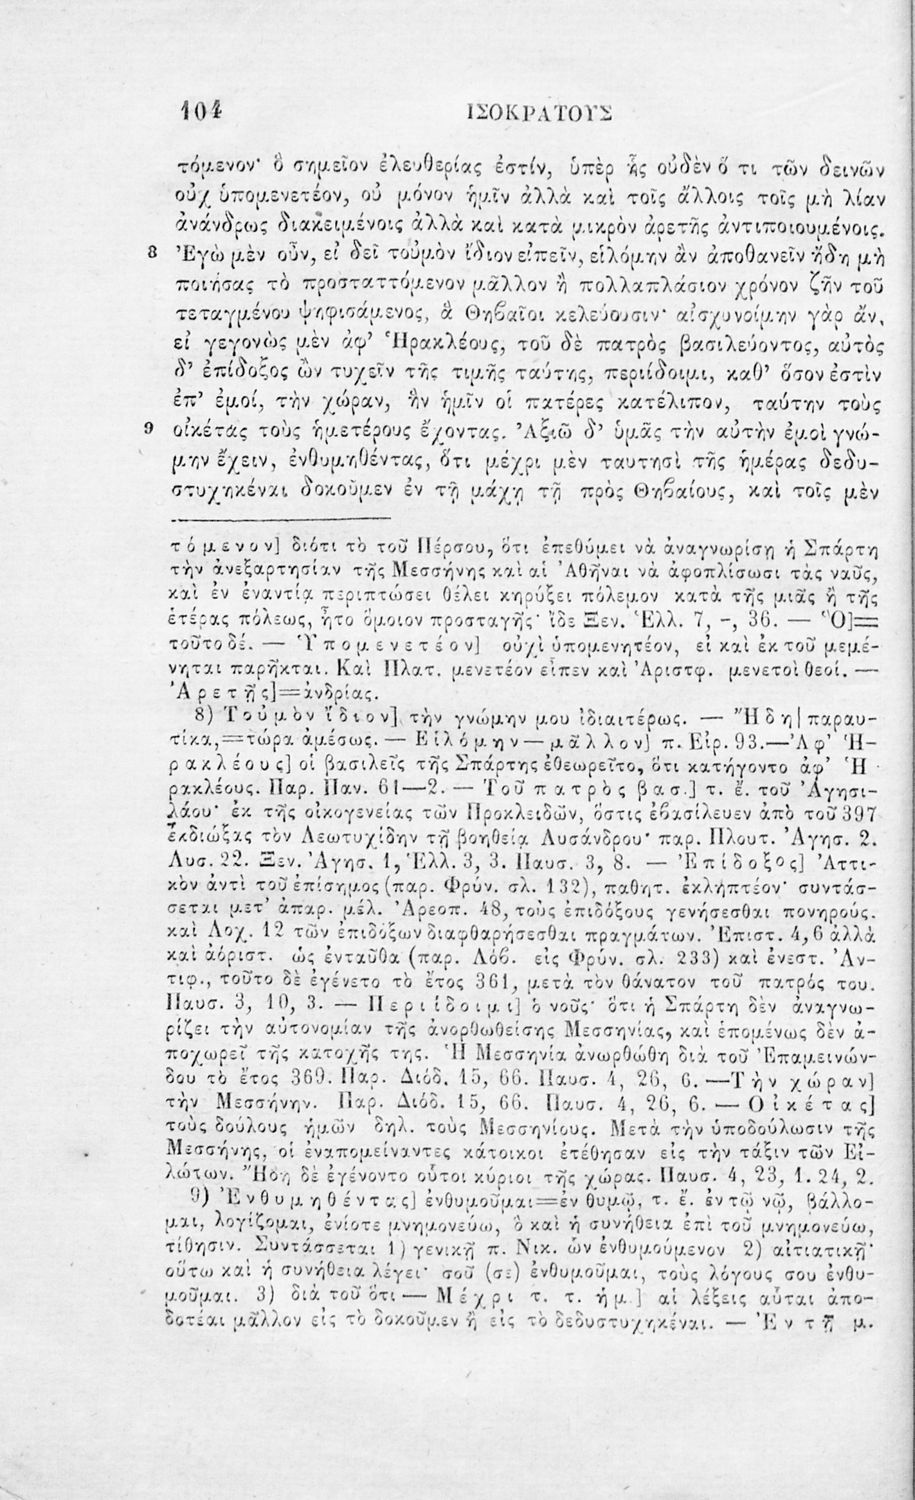 104 ΙΣΟΚΡΑΤΟΥΣ
τόμενον· ὃ σημεῖον ἐλευθερίας ἐστίν, ὑπὲρ ἧς οὐδὲν ὅ τι τῶν δεινῶν
οὐχ ὑπομενετέον, οὐ μόνον ἡμῖν ἀλλὰ καὶ τοῖς ἄλλοις τοῖς μὴ λίαν
ἀνάνδρως διακειμένοις ἀλλὰ καὶ κατὰ μικρὸν ἀρετῆς ἀντιποιουμένοις.
8 Ἐγὼ μὲν οὖν, εἰ δεῖ τοὐμὸν ἴδιον εἰπεῖν, εἱλόμην ἂν ἀποθανεῖν ἤδη μὴ
ποιήσας τὸ προσταττόμενον μᾶλλον ἢ πολλαπλάσιον χρόνον ζῆν τοῦ
τεταγμένου ψηφισάμενος, ἃ Θηβαῖοι κελεύουσιν· αἰσχυνοίμην γὰρ ἄν,
εἰ γεγονὼς μὲν ἀφ' Ἡρακλέους, τοῦ δὲ πατρὸς βασιλεύοντος, αὐτὸς
δ' ἐπίδοξος ὢν τυχεῖν τῆς τιμῆς ταύτης, περιίδοιμι, καθ' ὅσον ἐστὶν
ἐπ' ἐμοί, τὴν χώραν, ἣν ἡμῖν οἱ πατέρες κατέλιπον, ταύτην τοὺς
9 οἰκέτας τοὺς ἡμετέρους ἔχοντας. Ἀξιῶ δ' ὑμᾶς τὴν αὐτὴν ἐμοὶ γνώ-
μην ἔχειν, ἐνθυμηθέντας, ὅτι μέχρι μὲν ταυτησὶ τῆς ἡμέρας δεδυ-
στυχηκέναι δοκοῦμεν ἐν τῇ μάχῃ τῇ πρὸς Θηβαίους, καὶ τοῖς μὲν
τόμενον] διότι τὸ τοῦ Πέρσου, ὅτι ἐπεθύμει νὰ ἀναγνωρίσῃ ἡ Σπάρτη
τὴν ἀνεξαρτησίαν τῆς Μεσσήνης καὶ αἱ Ἀθῆναι νὰ ἀφοπλίσωσι τὰς ναῦς,
καὶ ἐν ἐναντίᾳ περιπτώσει θέλει κηρύξει πόλεμον κατὰ τῆς μιᾶς ἢ τῆς
ἑτέρας πόλεως, ἦτο ὅμοιον προσταγῆς· ἴδε Ξεν. Ἑλλ. 7, -, 36. — Ὃ]=
τοῦτο δέ. — Ὑπομενετέον] οὐχὶ ὑπομενητέον, εἰ καὶ ἐκ τοῦ μεμέ-
νηται παρῆκται. Καὶ Πλατ. μενετέον εἶπεν καὶ Ἀριστφ. μενετοὶ θεοί. —
Ἀρετῆς]=ἀνδρίας.
8) Τοὐμὸν ἴδιον] τὴν γνώμην μου ἰδιαιτέρως. — Ἤδη] παραυ-
τίκα,=τώρα ἀμέσως. — Εἱλόμην — μᾶλλον] π. Εἰρ. 93.—Ἀφ' Ἡ-
ρακλέους] οἱ βασιλεῖς τῆς Σπάρτης ἐθεωρεῖτο, ὅτι κατήγοντο ἀφ' Ἡ
ρακλέους. Παρ. Παν. 61—2. — Τοῦ πατρὸς βασ.] τ. ἔ. τοῦ Ἀγησι-
λάου· ἐκ τῆς οἰκογενείας τῶν Προκλειδῶν, ὅστις ἐβασίλευεν ἀπὸ τοῦ 397
ἐκδιώξας τὸν Λεωτυχίδην τῇ βοηθείᾳ Λυσάνδρου· παρ. Πλουτ. Ἀγησ. 2.
Λυσ. 22. Ξεν. Ἀγησ. 1, Ἑλλ. 3, 3. Παυσ. 3, 8. — Ἐπίδοξος] Ἀττι-
κὸν ἀντὶ τοῦ ἐπίσημος (παρ. Φρύν. σλ. 132), παθητ. ἐκληπτέον· συντάσ-
σεται μετ' ἀπαρ. μέλ. Ἀρεοπ. 48, τοὺς ἐπιδόξους γενήσεσθαι πονηρούς.
καὶ Λοχ. 12 τῶν ἐπιδόξων διαφθαρήσεσθαι πραγμάτων. Ἐπιστ. 4,6 ἀλλὰ
καὶ ἀόριστ. ὡς ἐνταῦθα (παρ. Λόβ. εἰς Φρύν. σλ. 233) καὶ ἐνεστ. Ἀν-
τιφ., τοῦτο δὲ ἐγένετο τὸ ἔτος 361, μετὰ τὸν θάνατον τοῦ πατρός του.
Παυσ. 3, 10, 3. — Περιίδοιμι] ὁ νοῦς· ὅτι ἡ Σπάρτη δὲν ἀναγνω-
ρίζει τὴν αὐτονομίαν τῆς ἀνορθωθείσης Μεσσηνίας, καὶ ἑπομένως δὲν ἀ-
ποχωρεῖ τῆς κατοχῆς της. Ἡ Μεσσηνία ἀνωρθώθη διὰ τοῦ Ἐπαμεινών-
δου τὸ ἔτος 369. Παρ. Διόδ. 15, 66. Παυσ. 4, 26, 6. —Τὴν χώραν]
τὴν Μεσσήνην. Παρ. Διόδ. 15, 66. Παυσ. 4, 26, 6. — Οἰκέτας]
τοὺς δούλους ἡμῶν δηλ. τοὺς Μεσσηνίους. Μετὰ τὴν ὑποδούλωσιν τῆς
Μεσσήνης, οἱ ἐναπομείναντες κάτοικοι ἐτέθησαν εἰς τὴν τάξιν τῶν Εἱ-
λώτων. Ἤδη δὲ ἐγένοντο οὗτοι κύριοι τῆς χώρας. Παυσ. 4, 23, 1. 24, 2.
9) Ἐνθυμηθέντας] ἐνθυμοῦμαι=ἐν θυμῷ, τ. ἔ. ἐν τῷ νῷ, βάλλο-
μαι, λογίζομαι, ἐνίοτε μνημονεύω, ὃ καὶ ἡ συνήθεια ἐπὶ τοῦ μνημονεύω,
τίθησιν. Συντάσσεται 1) γενικῇ π. Νικ. ὧν ἐνθυμούμενον 2) αἰτιατικῇ·
οὕτω καὶ ἡ συνήθεια λέγει· σοῦ (σε) ἐνθυμοῦμαι, τοὺς λόγους σου ἐνθυ-
μοῦμαι. 3) διὰ τοῦ ὅτι — Μέχρι τ. τ. ἡμ.] αἱ λέξεις αὗται ἀπο-
δοτέαι μᾶλλον εἰς τὸ δοκοῦμεν ἢ εἰς τὸ δεδυστυχηκέναι. — Ἐν τῇ μ.